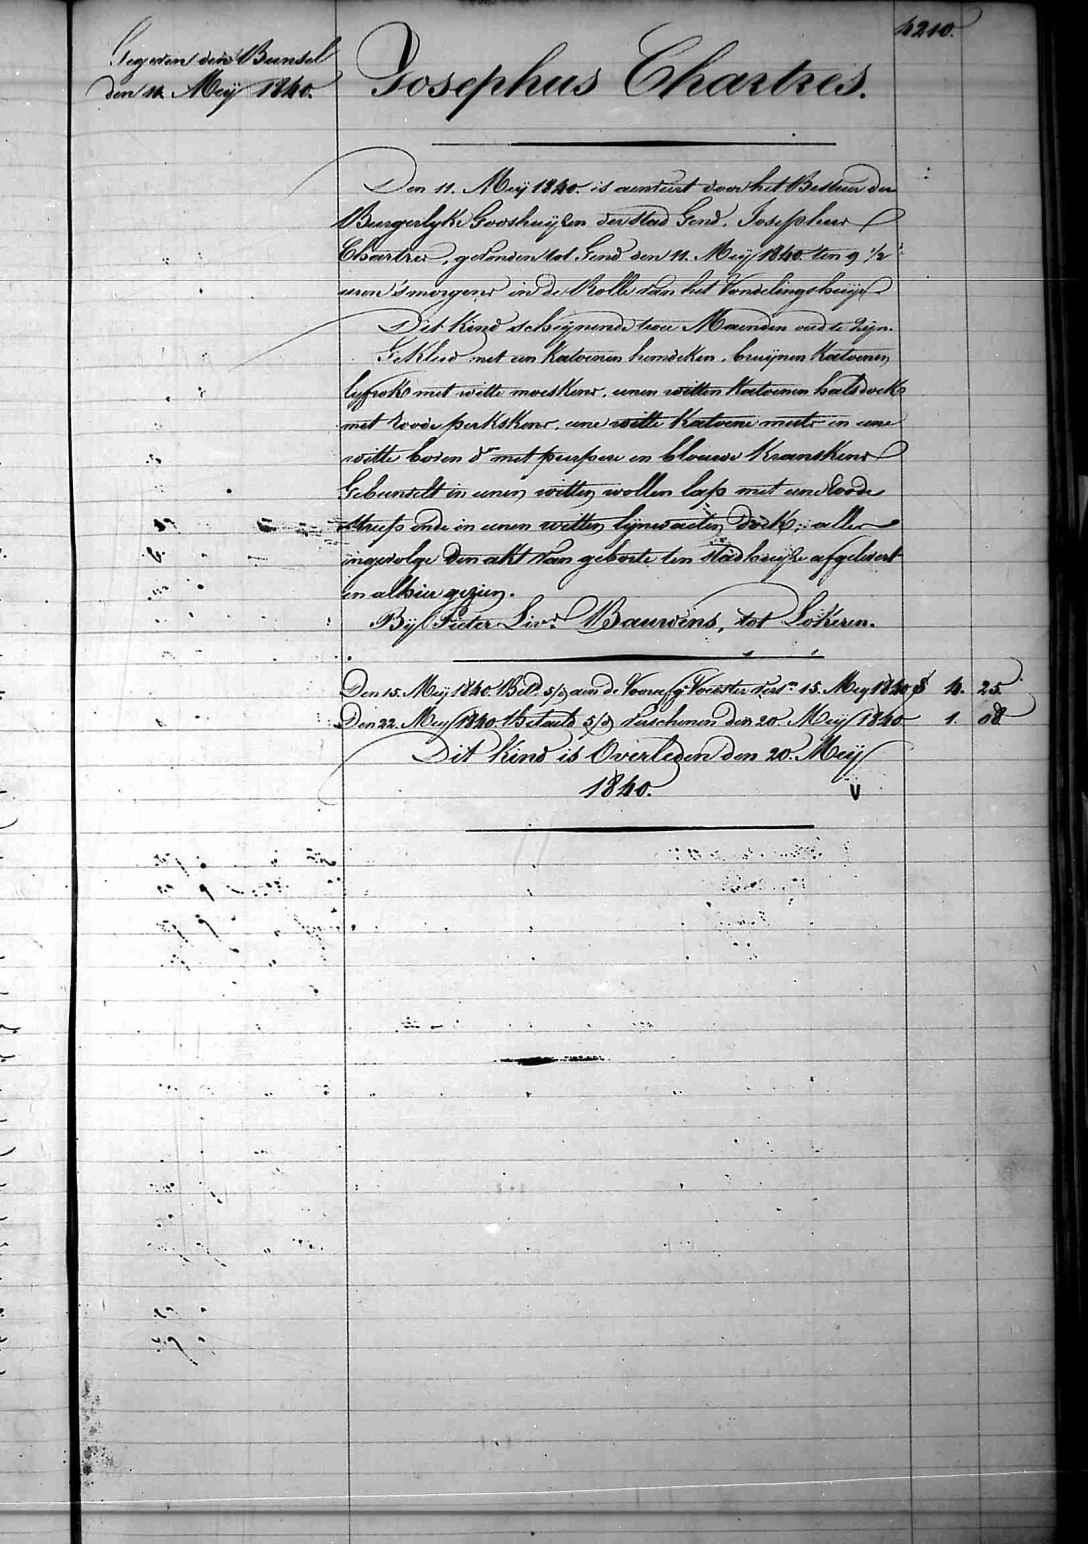 4210.
Gegeven den Bunsel
den 11. Meij 1840.
Josephus Chartres.
Den 11. Meij 1840. is aenveirt door het Bestuer der
Burgerlyke Godshuijzen der stad Gend. Josephus
Chartres, gevonden tot Gend den 11. Meij 1840. ten 9 1/2
uren 's morgens in de Rolle van het Vondelingshuijs
Dit kind scheijnende twee Maenden oud te zijn.
Gekleed met een katoenen hemdeken, bruijnen katoenen
lyfrok met witte moeskens, eenen witten katoenen halsdoek
met roode perkskens, eene witte katoene muts en eene
witte boven do met purpere en blouwe kranskens
Gebunselt in eenen witten wollen lap met eene roode
streep ende in eenen witten lynwaeten doek; alles
ingevolge den akt van geboorte ten stadhuijze afgelevert
en alhier gezien.
Bij Pieter Livs. Bauwens, tot Lokeren.
Den 15. Meij 1840 Betd. s/d aen de Voorige Voester vers.n 15. Meij 1840 4. 25.
Den 22. Meij 1840 Betaeld s/d verschenen den 20. Meij 1840 1. 08
Dit kind is Overleden den 20. Meij
1840. V